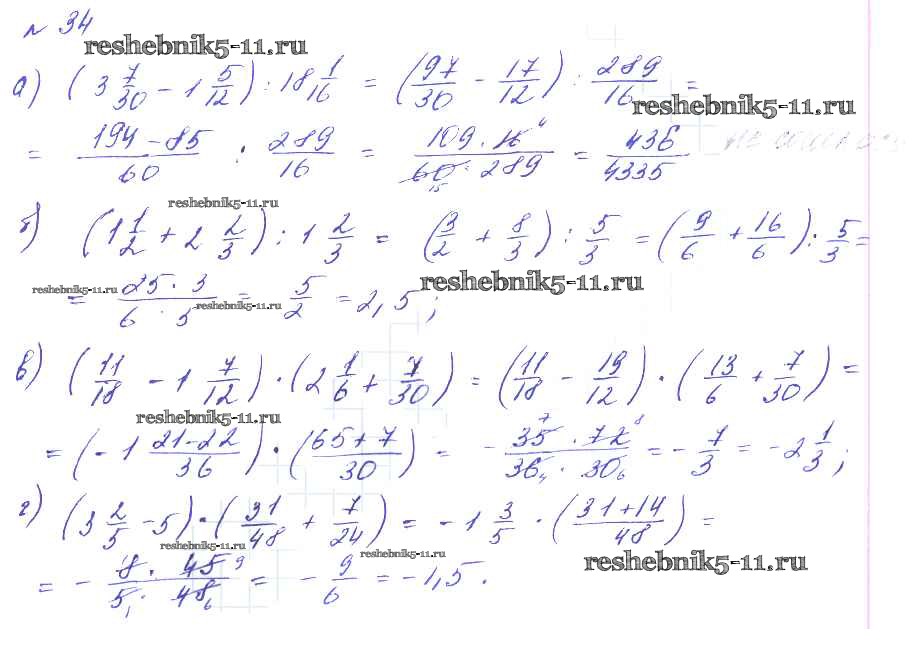 № 34
reshebnik5-11.ru
а) (3 7/30 − 1 5/12) : 18 1/16 = (97/30 − 17/12) : 289/16 =
reshebnik5-11.ru
= (194 − 85)/60 : 289/16 = (109 · 16 4)/(60 15 · 289) = 436/4335
reshebnik5-11.ru
б) (1 1/2 + 2 2/3) : 1 2/3 = (3/2 + 8/3) : 5/3 = (9/6 + 16/6) : 5/3 =
reshebnik5-11.ru
reshebnik5-11.ru
= (25 · 3)/(6 · 5) = 5/2 = 2,5;
reshebnik5-11.ru
в) (11/18 − 1 7/12) · (2 1/6 + 7/30) = (11/18 − 19/12) · (13/6 + 7/30) =
reshebnik5-11.ru
= (−1 (21−22)/36) · ((65+7)/30) = − (35 7 · 72 1)/(36 4 · 30 6) = − 7/3 = −2 1/3;
г) (3 2/5 − 5) · (31/48 + 7/24) = −1 3/5 · ((31+14)/48) =
reshebnik5-11.ru
reshebnik5-11.ru
reshebnik5-11.ru
= − (8 · 45 9)/(5 1 · 48 6) = − 9/6 = −1,5.